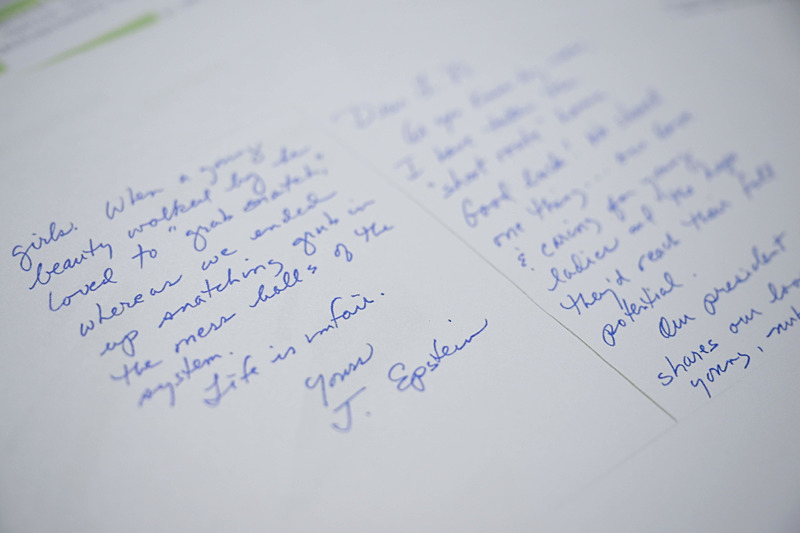 girls. When a young
beauty walked by he
loved to "grab snatch,"
whereas we ended
up snatching grub in
the mess halls of the
system.
Life is unfair.
Yours
J. Epstein
Dear
As you know by now
I have taken the
"short route" home.
Good luck! We shared
one thing... our love
& caring for young
ladies and the hope
they'd reach their full
potential.
Our president
shares our
young,